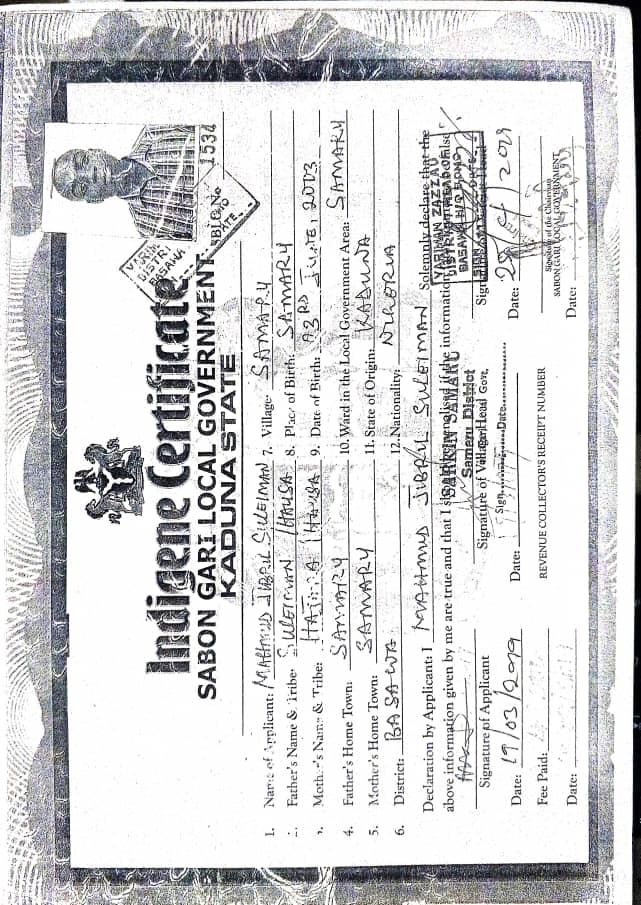 Indigene Certificate
SABON GARI LOCAL GOVERNMENT
KADUNA STATE
S/BLG No 1534
VARIMAN
DISTRICT
BASAWA
DATE
1. Name of Applicant: MAHMUD JIBRIL SULEIMAN
2. Father's Name & Tribe: SULEIMAN / HAUSA
3. Mother's Name & Tribe: / HAUSA
4. Father's Home Town: SAMARU
5. Mother's Home Town: SAMARU
6. District: BASAWA
7. Village: SAMARU
8. Place of Birth: SAMARU
9. Date of Birth: JUNE, 2003
10. Ward in the Local Government Area: SAMARU
11. State of Origin: KADUNA
12. Nationality: NIGERIA
Declaration by Applicant: I MAHMUD JIBRIL SULEIMAN Solemnly declare that the
above information given by me are true and that I shall be penalised if the information
Signature of Applicant
Date: 19/03/2019
SARKIN SAMARU
Samaru District
Signature of Village Head Govt.
Sign. Date.
Date:
VARIMAN ZAZZAU
DISTRICT HEAD OF
BASAWA
SIGN
Date:
Fee Paid:
REVENUE COLLECTOR'S RECEIPT NUMBER
Signature of the Chairman
SABON GARI LOCAL GOVERNMENT
Date:
Date: